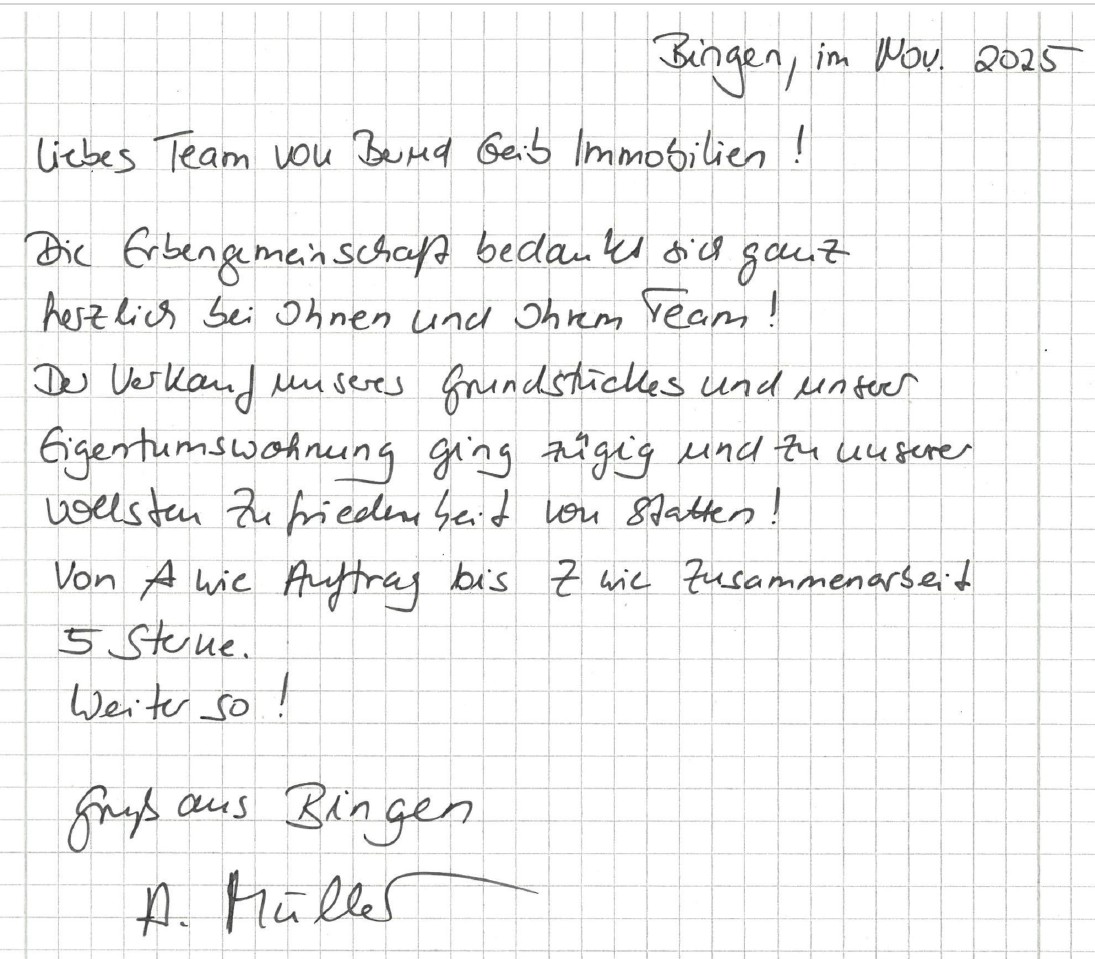 Bingen, im Nov. 2025
Liebes Team von Bernd Geib Immobilien !
Die Erbengemeinschaft bedankt sich ganz
herzlich bei Ihnen und Ihrem Team !
Der Verkauf unseres Grundstückes und unserer
Eigentumswohnung ging zügig und zu unserer
vollsten Zufriedenheit von Statten !
Von A wie Auftrag bis Z wie Zusammenarbeit
5 Sterne.
Weiter so !
Gruß aus Bingen
A. Müller